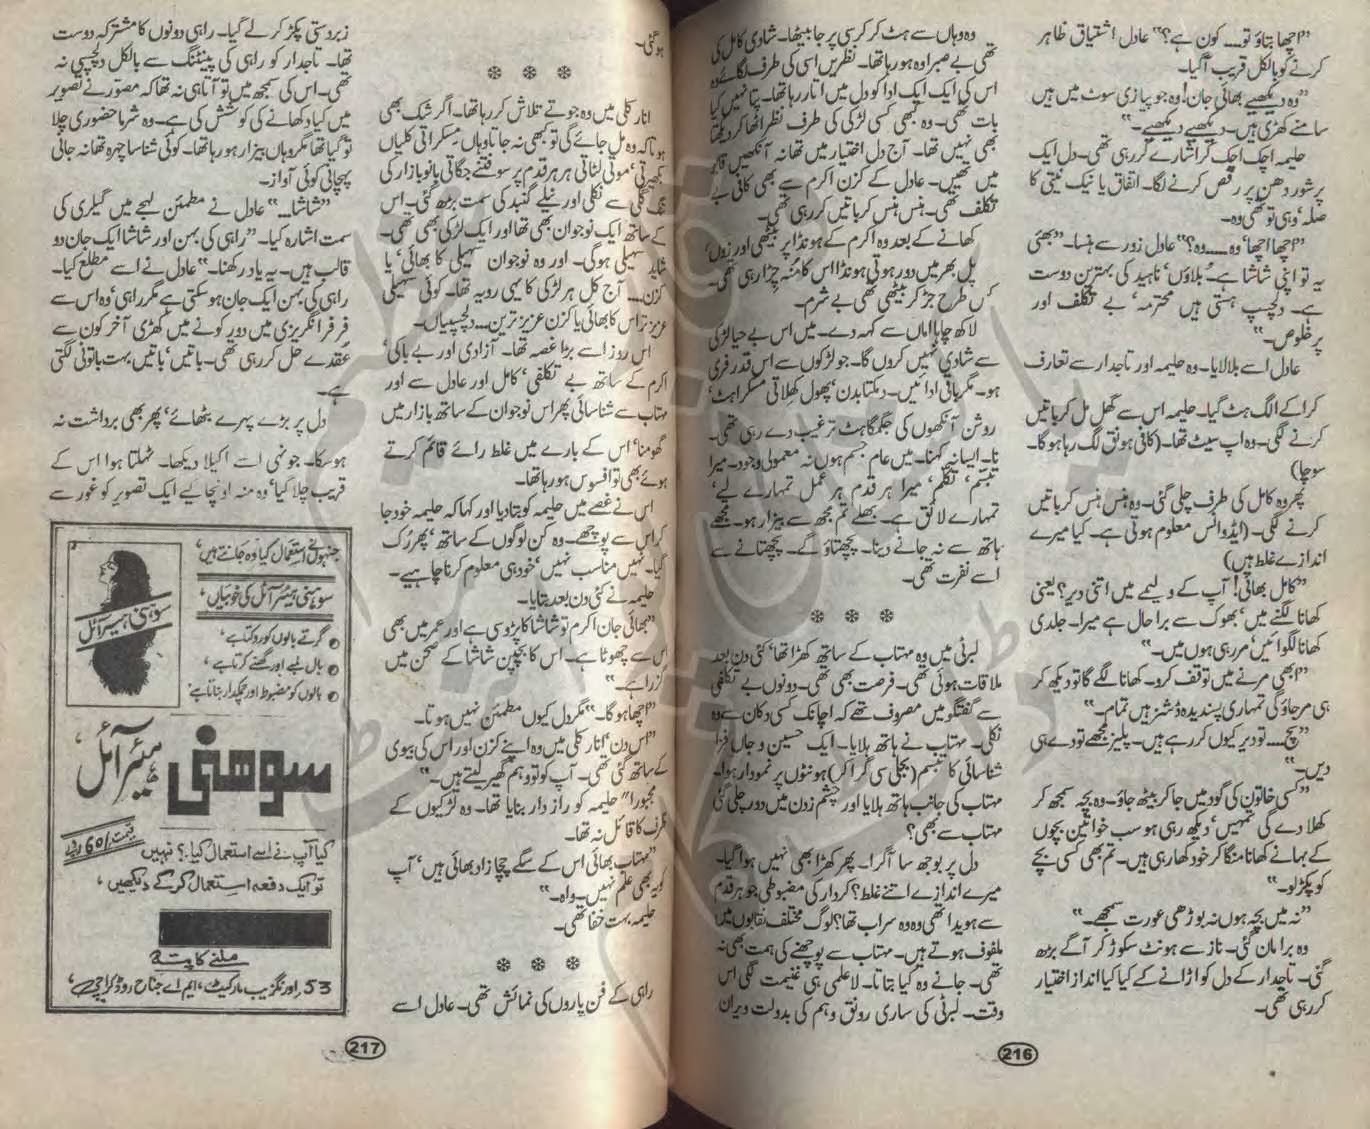 "اچھا بتاؤ تو.... کون ہے؟" عادل اشتیاق ظاہر
کرنے کو بالکل قریب آگیا۔
"وہ دیکھیے بھائی جان! وہ جو پیازی سوٹ میں ہیں
سامنے کھڑی ہیں۔ دیکھیے دیکھیے۔"
حلیمہ اچک اچک کر اشارے کر رہی تھی۔ دل ایک
پرشور دھن پر رقص کرنے لگا۔ اتفاق یا نیک نیتی کا
صلہ، وہی تو تھی وہ۔
"اچھا اچھا، وہ.... وہ؟" عادل زور سے ہنسا۔ "بھئی
یہ تو اپنی شاشا ہے۔ بلاؤں، ناہید کی بہترین دوست
ہے۔ دلچسپ ہستی ہیں محترمہ، بے تکلف اور
پرخلوص۔"
عادل اسے بلا لایا۔ وہ حلیمہ اور تاجدار سے تعارف
کرا کے الگ ہٹ گیا۔ حلیمہ اس سے گھل مل کر باتیں
کرنے لگی۔ وہ اپ سیٹ تھا۔ (کافی ہونق لگ رہا ہوگا۔
سوچا)
پھر وہ کامل کی طرف چلی گئی۔ وہ ہنس ہنس کر باتیں
کرنے لگی۔ (ایڈوانس معلوم ہوتی ہے۔ کیا میرے
اندازے غلط ہیں)
"کامل بھائی! آپ کے ولیمے میں اتنی دیر؟ یعنی
کھانا لگنے میں، بھوک سے برا حال ہے میرا۔ جلدی
کھانا لگوائیں، مر رہی ہوں میں۔"
"ابھی مرنے میں توقف کرو۔ کھانا لگے گا تو دیکھ کر
ہی مر جاؤ گی تمہاری پسندیدہ ڈشنز ہیں تمام۔"
"سچ.... تو دیر کیوں کر رہے ہیں۔ پلیز مجھے تو دے ہی
دیں۔"
"کسی خاتون کی گود میں جا کر بیٹھ جاؤ۔ وہ بچہ سمجھ کر
کھلا دے گی تمہیں، دیکھ رہی ہو سب خواتین بچوں
کے بہانے کھانا منگا کر خود کھا رہی ہیں۔ تم بھی کسی بچے
کو پکڑ لو۔"
"نہ میں بچہ ہوں نہ بوڑھی عورت سمجھے۔"
وہ برا مان گئی۔ ناز سے ہونٹ سکوڑ کر آگے بڑھ
گئی۔ تاجدار کے دل کو اڑانے کے کیا کیا انداز اختیار
کر رہی تھی۔
وہ وہاں سے ہٹ کر کرسی پر جا بیٹھا۔ شادی کامل کی
تھی بے صبرا وہ ہو رہا تھا۔ نظریں اسی کی طرف لگائے وہ
اس کی ایک ایک ادا کو دل میں اتار رہا تھا۔ پتا نہیں کیا
بات تھی۔ وہ کبھی کسی لڑکی کی طرف نظر اٹھا کر دیکھتا
بھی نہیں تھا۔ آج دل اختیار میں تھا نہ آنکھیں قابو
میں تھیں۔ عادل کے کزن اکرم سے بھی کافی بے
تکلف تھی۔ ہنس ہنس کر باتیں کر رہی تھی۔
کھانے کے بعد وہ اکرم کے ہونڈا پر بیٹھی اور زوں،
پل بھر میں دور ہوتی ہونڈا اس کا منہ چڑا رہی تھی۔
کس طرح جڑ کر بیٹھی تھی بے شرم۔
لاکھ چاہا اماں سے کہہ دے۔ میں اس بے حیا لڑکی
سے شادی نہیں کروں گا۔ جو لڑکوں سے اس قدر فری
ہو۔ مگر ہائی ادائیں۔ دمکتا بدن، پھول کھلاتی مسکراہٹ،
روشن آنکھوں کی جگمگاہٹ ترغیب دے رہی تھی۔
نا۔ ایسا نہ کہنا۔ میں عام جسم ہوں نہ معمولی وجود۔ میرا
تبسم، تکلم، میرا ہر قدم ہر عمل تمہارے لیے،
تمہارے لائق ہے۔ بھلے تم مجھ سے بیزار ہو۔ مجھے
ہاتھ سے نہ جانے دینا۔ پچھتاؤ گے۔ پچھتانے سے
اسے نفرت تھی۔
* * *
لبرٹی میں وہ مہتاب کے ساتھ کھڑا تھا، کئی دن بعد
ملاقات ہوئی تھی۔ فرصت بھی تھی۔ دونوں بے تکلفی
سے گفتگو میں مصروف تھے کہ اچانک کسی دکان سے وہ
نکلی۔ مہتاب نے ہاتھ ہلایا۔ ایک حسین و جاں فزا
شناسائی کا تبسم (بجلی سی گرا کر) ہونٹوں پر نمودار ہوا۔
مہتاب کی جانب ہاتھ ہلایا اور چشم زدن میں دور چلی گئی
مہتاب سے بھی؟
دل پر بوجھ سا آگرا۔ پھر کھڑا بھی نہیں ہوا گیا۔
میرے اندازے اتنے غلط؟ کردار کی مضبوطی جو ہر قدم
سے ہویدا تھی وہ وہ سراب تھا؟ لوگ مختلف نقابوں میں
ملفوف ہوتے ہیں۔ مہتاب سے پوچھنے کی ہمت بھی نہ
تھی۔ جانے وہ کیا بتاتا۔ لاعلمی ہی غنیمت لگی اس
وقت۔ لبرٹی کی ساری رونق وہم کی بدولت ویران
216
ہوگئی۔
* * *
انارکلی میں وہ جوتے تلاش کر رہا تھا۔ اگر شک بھی
ہوتا کہ وہ مل جائے گی تو کبھی نہ جاتا وہاں مسکراتی کلیاں
بکھیرتی، موتی لٹاتی ہر ہر قدم پر سو فتنے جگاتی بانو بازار کی
تنگ گلی سے نکلی اور نیلے گنبد کی سمت بڑھ گئی۔ اس
کے ساتھ ایک نوجوان بھی تھا اور ایک لڑکی بھی تھی۔
شاید سہیلی ہوگی۔ اور وہ نوجوان سہیلی کا بھائی، یا
کزن.... آج کل ہر لڑکی کا یہی رویہ تھا۔ کوئی سہیلی
عزیز تر اس کا بھائی یا کزن عزیز ترین.... دلچسپیاں۔
اس روز اسے بڑا غصہ تھا۔ آزادی اور بے باکی،
اکرم کے ساتھ بے تکلفی، کامل اور عادل سے اور
مہتاب سے شناسائی پھر اس نوجوان کے ساتھ بازار میں
گھومنا، اس کے بارے میں غلط رائے قائم کرتے
ہوئے بھی تو افسوس ہو رہا تھا۔
اس نے غصے میں حلیمہ کو بتا دیا اور کہا کہ حلیمہ خود جا
کر اس سے پوچھے۔ وہ کن لوگوں کے ساتھ، پھر رک
گیا۔ نہیں مناسب نہیں، خود ہی معلوم کرنا چاہیے۔
حلیمہ نے کئی دن بعد بتایا۔
"بھائی جان اکرم تو شاشا کا پڑوسی ہے اور عمر میں بھی
اس سے چھوٹا ہے۔ اس کا بچپن شاشا کے صحن میں
گزرا ہے۔"
"اچھا ہوگا۔" مگر دل کیوں مطمئن نہیں ہوتا۔
"اس دن، انارکلی میں وہ اپنے کزن اور اس کی بیوی
کے ساتھ گئی تھی۔ آپ کو تو وہم گھیر لیتے ہیں۔"
مجبورا" حلیمہ کو رازدار بنایا تھا۔ وہ لڑکیوں کے
ظرف کا قائل نہ تھا۔
"مہتاب بھائی اس کے سگے چچا زاد بھائی ہیں، آپ
کو یہ بھی علم نہیں۔ واہ۔"
حلیمہ بہت خفا تھی۔
* * *
راہی کے فن پاروں کی نمائش تھی۔ عادل اسے
زبردستی پکڑ کر لے گیا۔ راہی دونوں کا مشترکہ دوست
تھا۔ تاجدار کو راہی کی پینٹنگ سے بالکل دلچسپی نہ
تھی۔ اس کی سمجھ میں تو آتا ہی نہ تھا کہ مصور نے تصویر
میں کیا دکھانے کی کوشش کی ہے۔ وہ شرما حضوری چلا
تو گیا تھا مگر وہاں بیزار ہو رہا تھا۔ کوئی شناسا چہرہ تھا نہ جانی
پہچانی کوئی آواز۔
"شاشا...." عادل نے مطمئن لہجے میں گیلری کی
سمت اشارہ کیا۔ "راہی کی بہن اور شاشا ایک جان دو
قالب ہیں۔ یہ یاد رکھنا۔" عادل نے اسے مطلع کیا۔
راہی کی بہن ایک جان ہو سکتی ہے مگر راہی، وہ اس سے
فرفر انگریزی میں دور کونے میں کھڑی آخر کون سے
عقدے حل کر رہی تھی۔ باتیں، باتیں، بہت باتونی لگتی
ہے۔
دل پر بڑے پہرے بٹھائے، پھر بھی برداشت نہ
ہوسکا۔ جونہی اسے اکیلا دیکھا۔ ٹہلتا ہوا اس کے
قریب چلا گیا، وہ منہ اونچا کیے ایک تصویر کو غور سے
جنہوں نے استعمال کیا وہ جانتے ہیں،
سوہنی ہیئر آئل کی خوبیاں،
گرتے بالوں کو روکتا ہے،
بال لمبے اور گھنے کرتا ہے،
بالوں کو مضبوط اور چمکدار بناتا ہے،
سوہنی ہیئر آئل
سوہنی ہیئر آئل،
قیمت/60 روپے
کیا آپ نے اسے استعمال کیا؟ نہیں
تو ایک دفعہ استعمال کرکے دیکھیں،
ملنے کا پتہ
53، اورنگزیب مارکیٹ، ایم اے جناح روڈ کراچی،
217